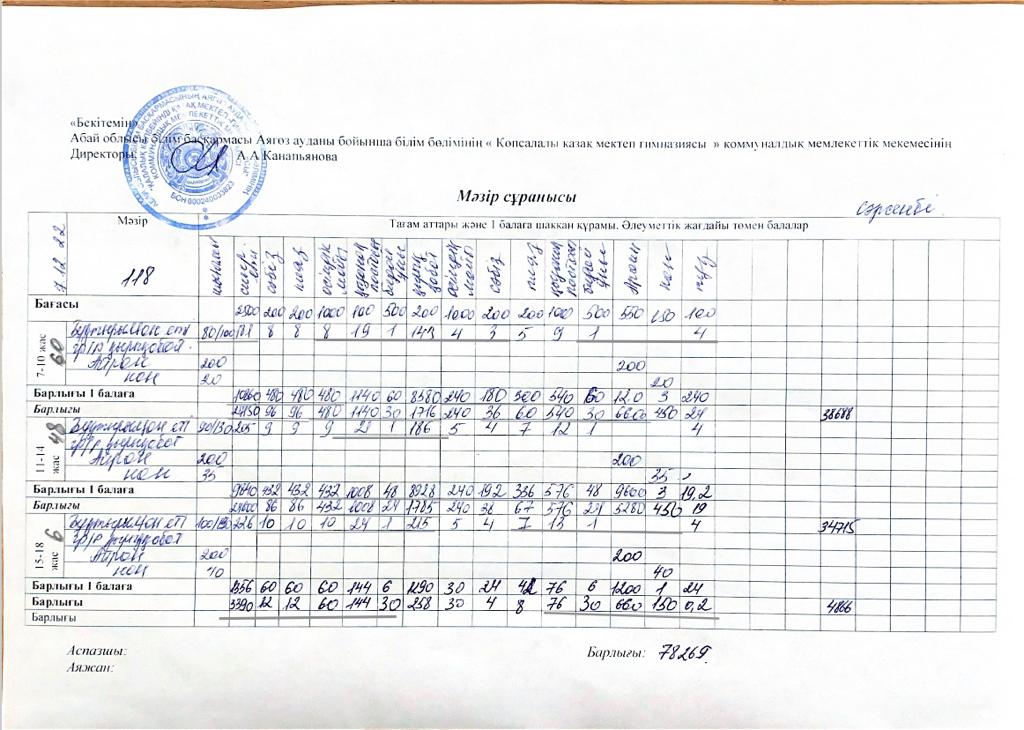 «Бекітемін»
Абай облысы білім басқармасы Аягөз ауданы бойынша білім бөлімінің « Көпсалалы қазақ мектеп гимназиясы » коммуналдық мемлекеттік мекемесінің
Директоры: А А Канапьянова
БСН 000240003823
Мәзір сұранысы
сәрсенбі
7.12.22 Мәзір Тағам аттары және 1 балаға шаққан құрамы. Әлеуметтік жағдайы төмен балалар
118 сәбіз пияз өсімдік майы сәбіз пияз Айран нан тұз
Бағасы 2500 200 200 1000 100 500 200 1000 200 200 1000 500 550 150 100
7-10 жас 60 80/100 181 8 8 8 19 1 143 4 3 5 9 1 4
Айран 200 200
нан 20 20
Барлығы 1 балаға 10860 480 480 480 1140 60 8580 240 180 300 540 60 120 3 240
Барлығы 27150 96 96 480 1140 30 1716 240 36 60 540 30 6600 450 24 38688
11-14 жас 48 90/130 205 9 9 9 21 1 186 5 4 7 12 1 4
Айран 200 200
нан 35 35
Барлығы 1 балаға 9840 432 432 432 1008 48 8928 240 192 336 576 48 9600 3 19,2
Барлығы 24600 86 86 432 1008 24 1785 240 38 67 576 24 5280 450 19
15-18 жас 6 226 10 10 10 24 1 215 5 4 7 13 1 4 34715
Айран 200 200
нан 40 40
Барлығы 1 балаға 1356 60 60 60 144 6 1290 30 24 42 76 6 1200 1 24
Барлығы 3390 12 12 60 144 30 258 30 4 8 76 30 660 150 0,2 4866
Барлығы
Аспазшы: Барлығы: 78269
Аяжан: